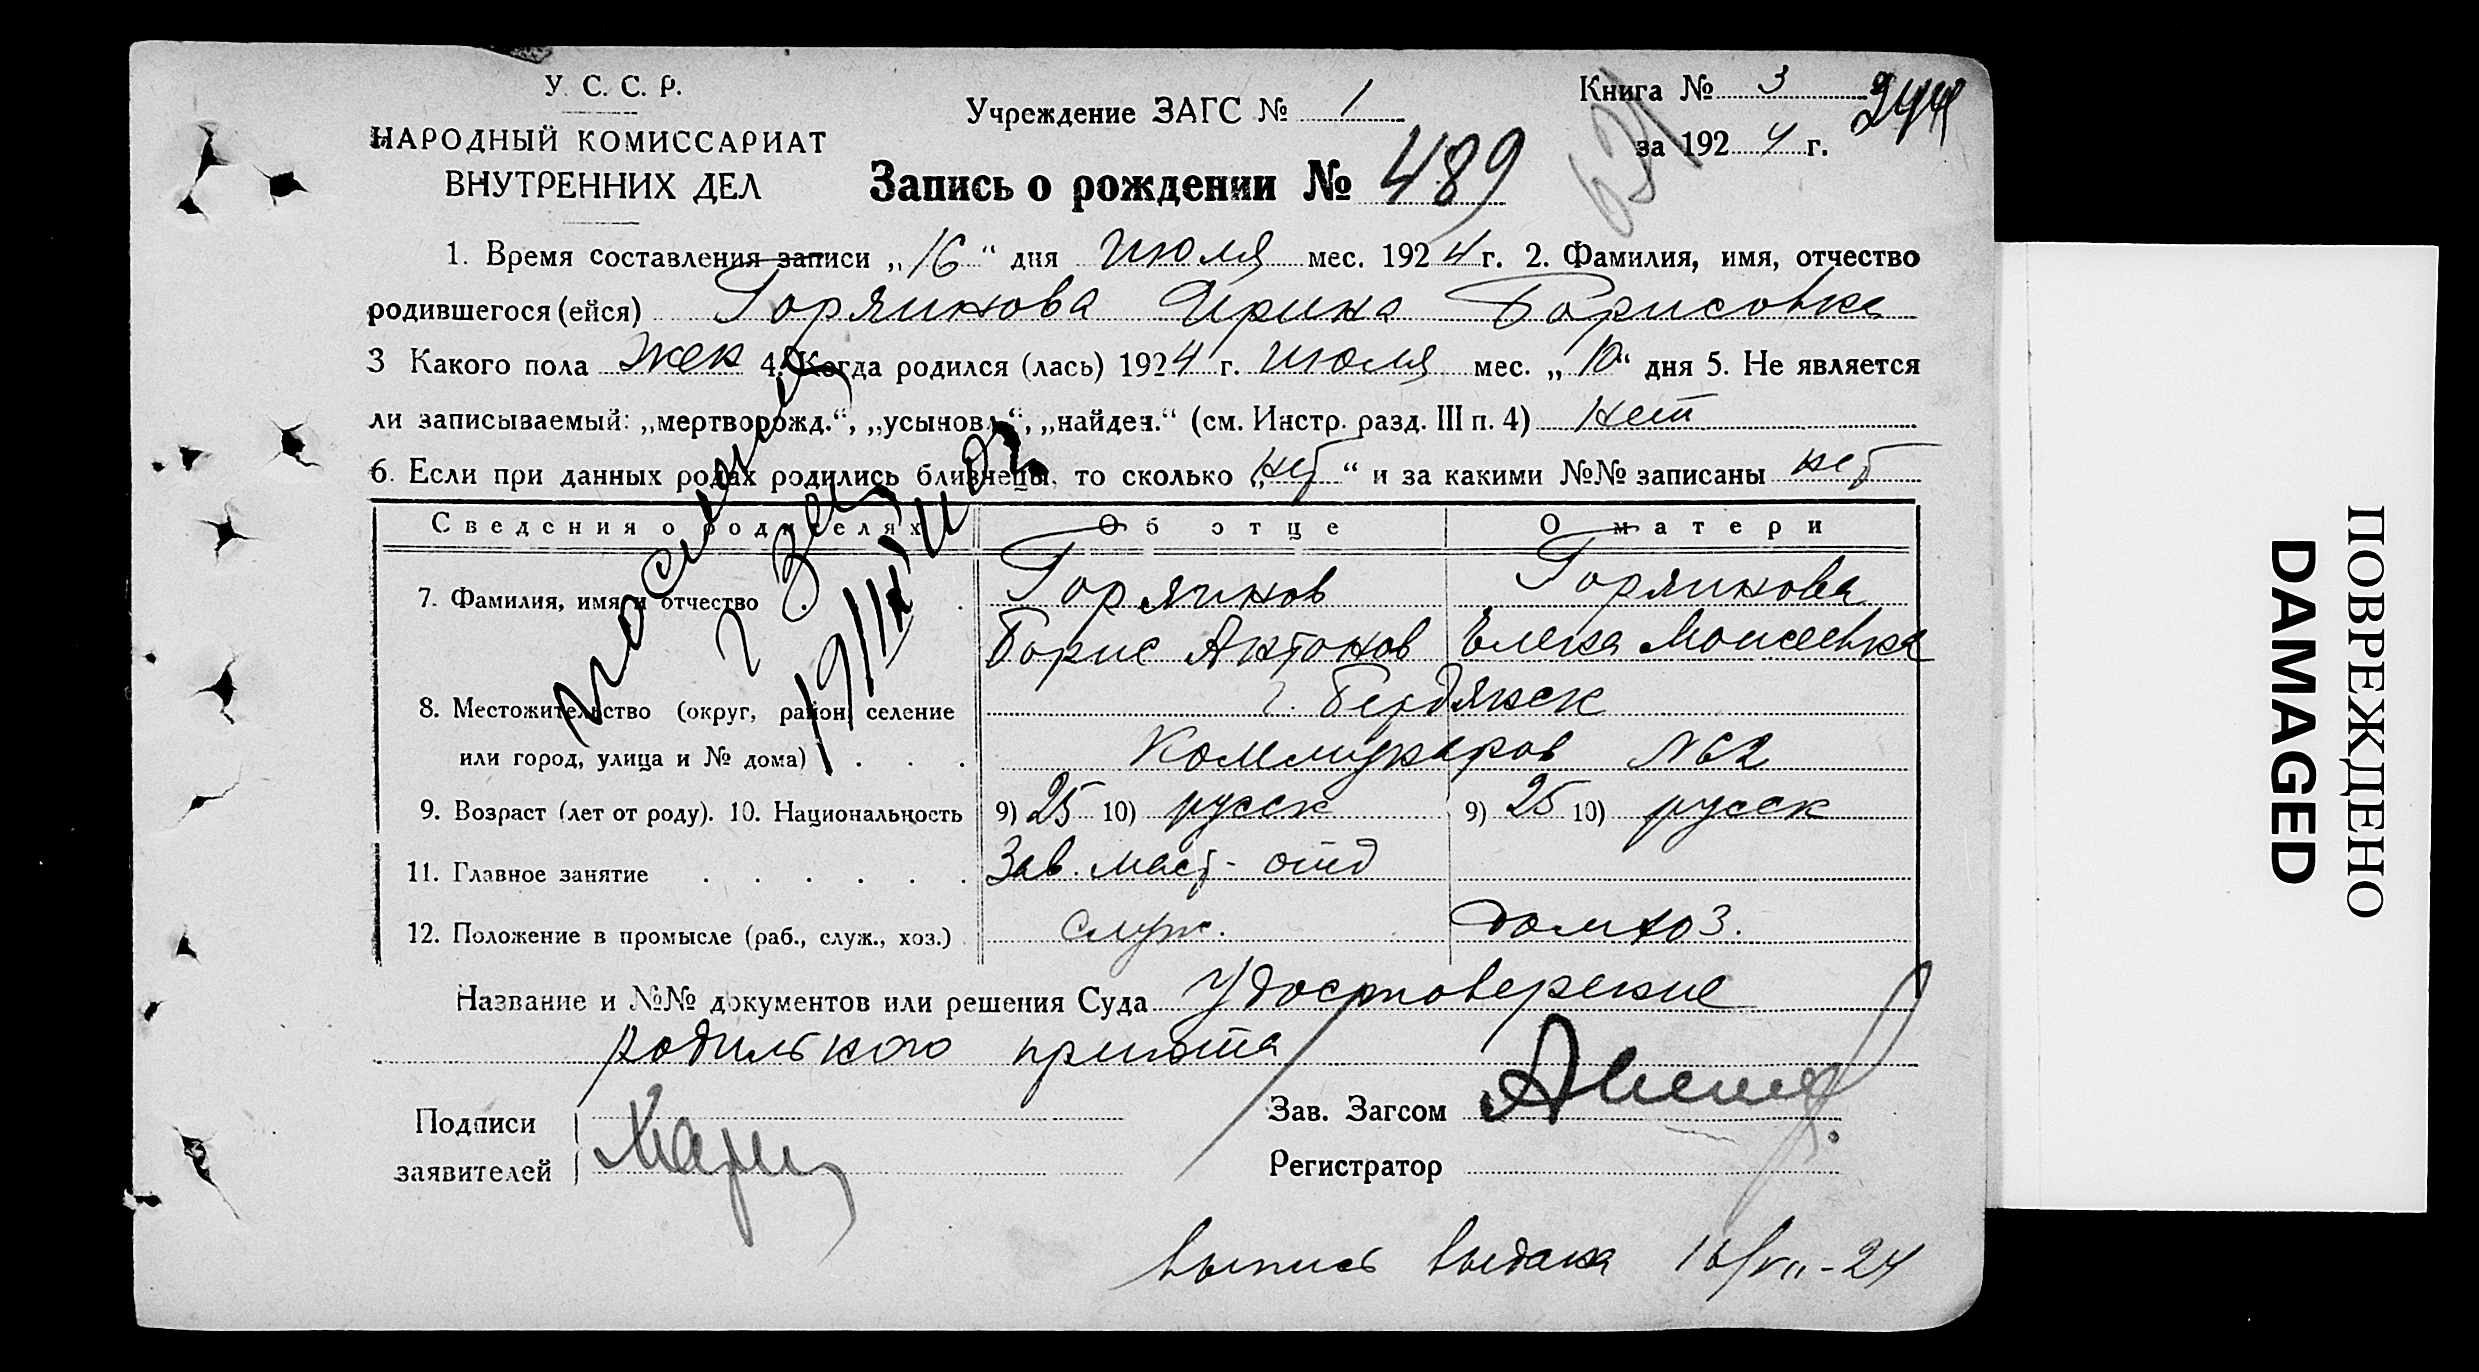 У. С. С. Р.
НАРОДНЫЙ КОМИССАРИАТ
ВНУТРЕННИХ ДЕЛ
Учреждение ЗАГС № 1
Книга № 3
244
за 1924 г.
Запись о рождении № 489
1. Время составления записи „16“ дня июля мес. 1924 г. 2. Фамилия, имя, отчество
родившегося (ейся) Горяинова Ирина Борисовна
3 Какого пола жен 4. Когда родился (лась) 1924 г. июля мес. „10“ дня 5. Не является
ли записываемый: „мертворожд.“, „усыновл.“, „найден.“ (см. Инстр. разд. III п. 4) нет
6. Если при данных родах родились близнецы, то сколько „нет“ и за какими №№ записаны нет
Сведения о родителях Об отце О матери
7. Фамилия, имя и отчество Горяинов Горяинова
Борис Антонов Елена Моисеевна
8. Местожительство (округ, район, селение г. Бердянск
или город, улица и № дома) Коммунаров №2
9. Возраст (лет от роду). 10. Национальность 9) 25 10) русск 9) 25 10) русск
11. Главное занятие Зав. маст. отд
12. Положение в промысле (раб., служ., хоз.) служ. домхоз.
Название и №№ документов или решения Суда Удостоверение
родильного приюта
Подписи
заявителей
Зав. Загсом
Регистратор
выпись выдана 16/VII-24
ПОВРЕЖДЕНО
DAMAGED